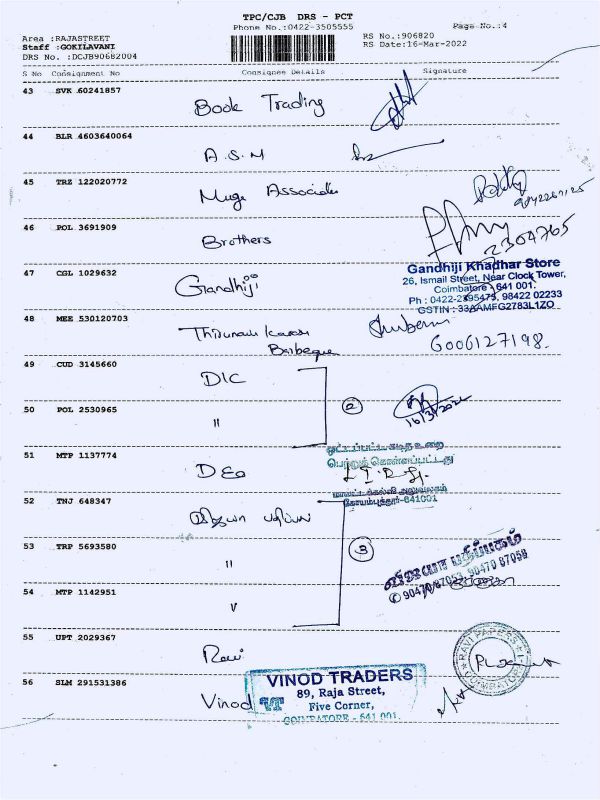 TPC/CJB DRS - PCT
Phone No.:0422-3505555
Page No.:4
Area :RAJASTREET
Staff :GOKILAVANI
DRS No. :DCJB90682004
RS No.:906820
RS Date:16-Mar-2022
S No Consignment No Consignee Details Signature
43 SVK 60241857 Book Trading
44 BLR 4603640064 A.S.M
45 TRZ 122020772 Muge Associates
46 POL 3691909 Brothers
2304765
47 CGL 1029632 Gandhiji
Gandhiji Khadhar Store
26, Ismail Street, Near Clock Tower,
Coimbatore - 641 001.
Ph : 0422-2395475, 98422 02233
GSTIN : 33AAMFG2783L1ZO
48 MEE 530120703
Barbeque
6006127198.
49 CUD 3145660 DIC
②
16/3/2022
50 POL 2530965 "
51 MTP 1137774 DEO
ஒட்டப்பட்ட கடித உறை
பெற்றுக் கொள்ளப்பட்டது
மாவட்டக்கல்வி அலுவலகம்
கோயம்புத்தூர்-641001
52 TNJ 648347 விஜயா பதிப்பகம்
③
53 TRP 5693580 "
விஜயா பதிப்பகம்
90470 87058
54 MTP 1142951 "
55 UPT 2029367 Ravi
RAVI PAPERS
COIMBATORE
56 SLM 291531386 Vinod
VT
VINOD TRADERS
89, Raja Street,
Five Corner,
COIMBATORE - 641 001.